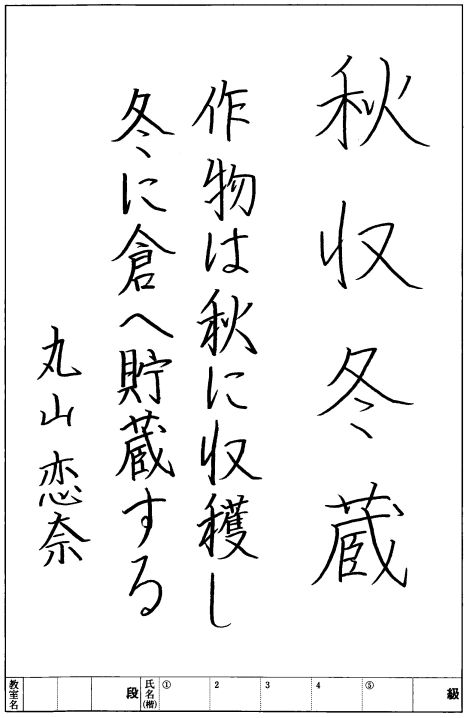 秋収冬蔵
作物は秋に収穫し
冬に倉へ貯蔵する
丸山恋奈
級
⑤
4
3
2
①
氏名(楷)
段
教室名